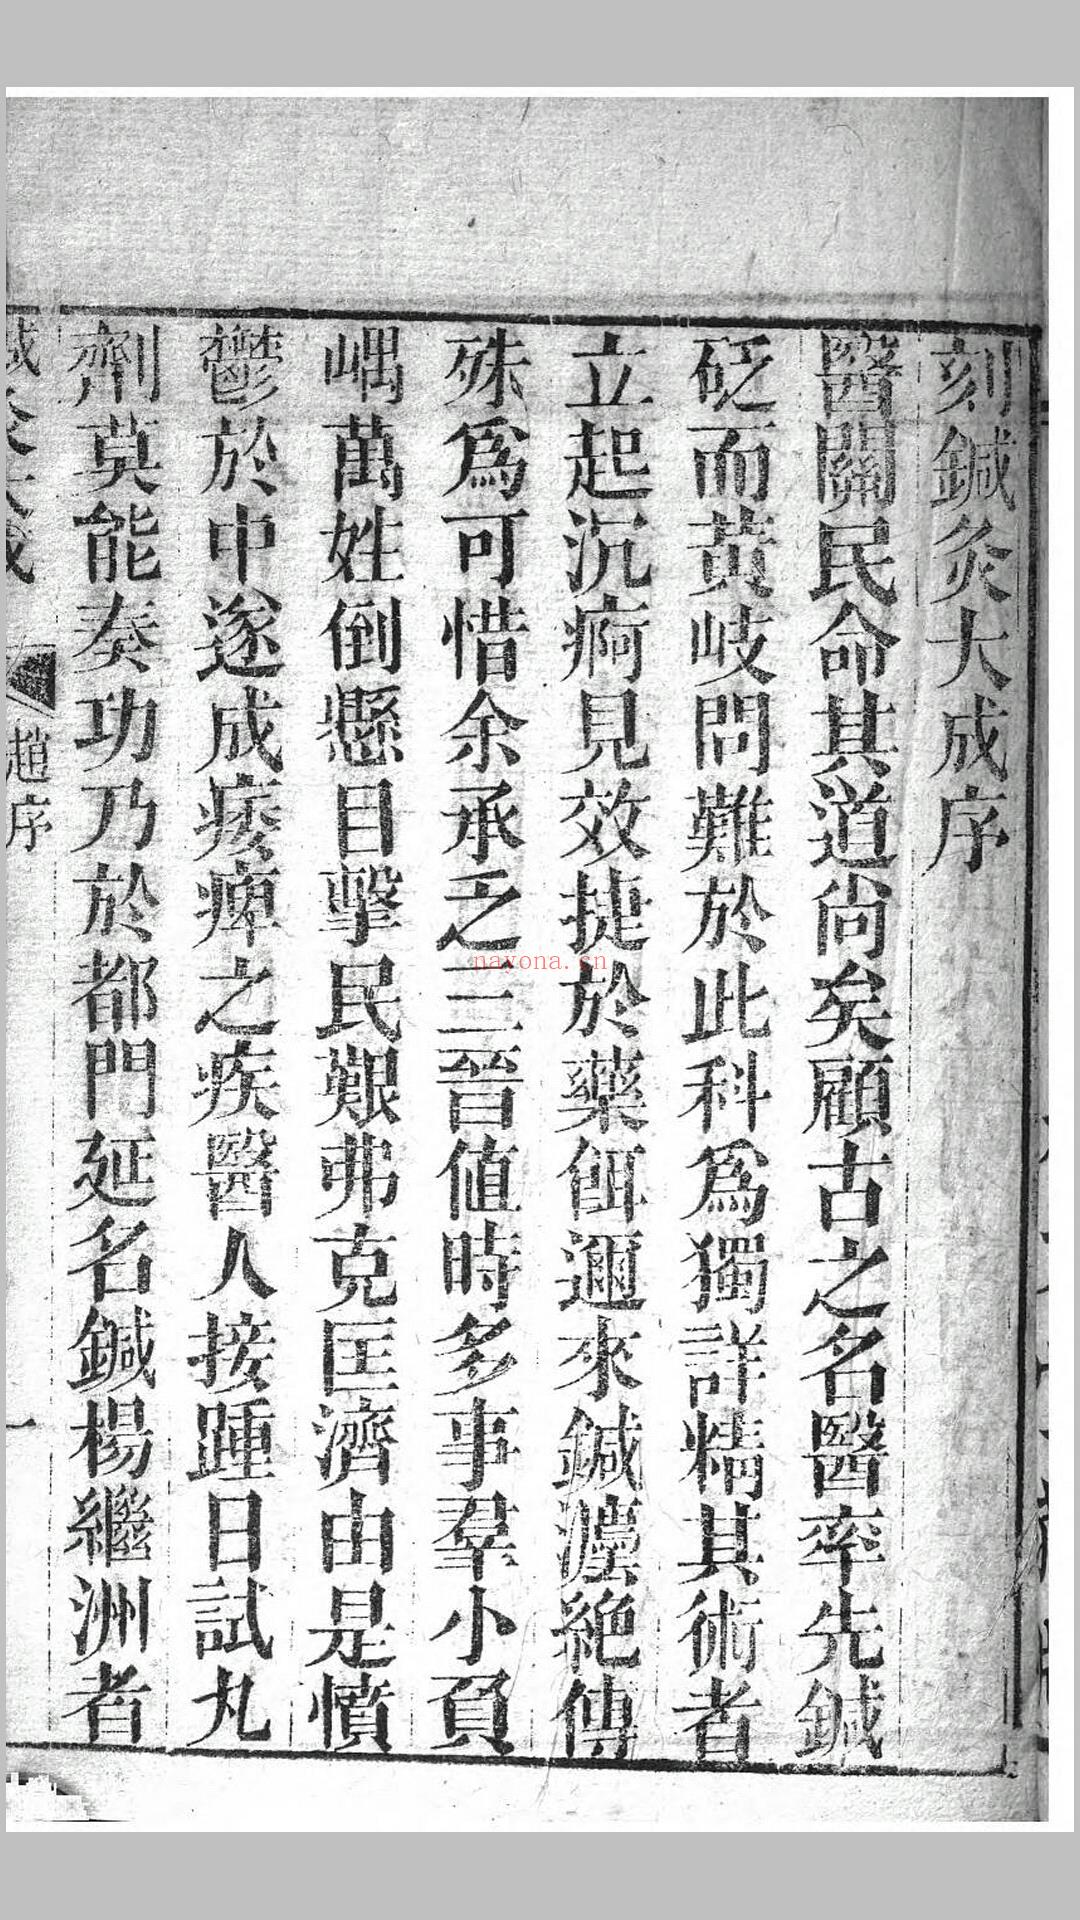 刻鍼灸大成序
醫關民命其道尚矣顧古之名醫率先鍼
砭而黃岐問難於此科爲獨詳精其術者
立起沉痾見效捷於藥餌邇來鍼灋絕傳
殊爲可惜余承乏三晉值時多事羣小負
嵎萬姓倒懸目擊民艱弗克匡濟由是憤
鬱於中遂成痿痺之疾醫人接踵日試丸
劑莫能奏功乃於都門延名鍼楊繼洲者
鍼灸大成 趙序 一
nayona.cn